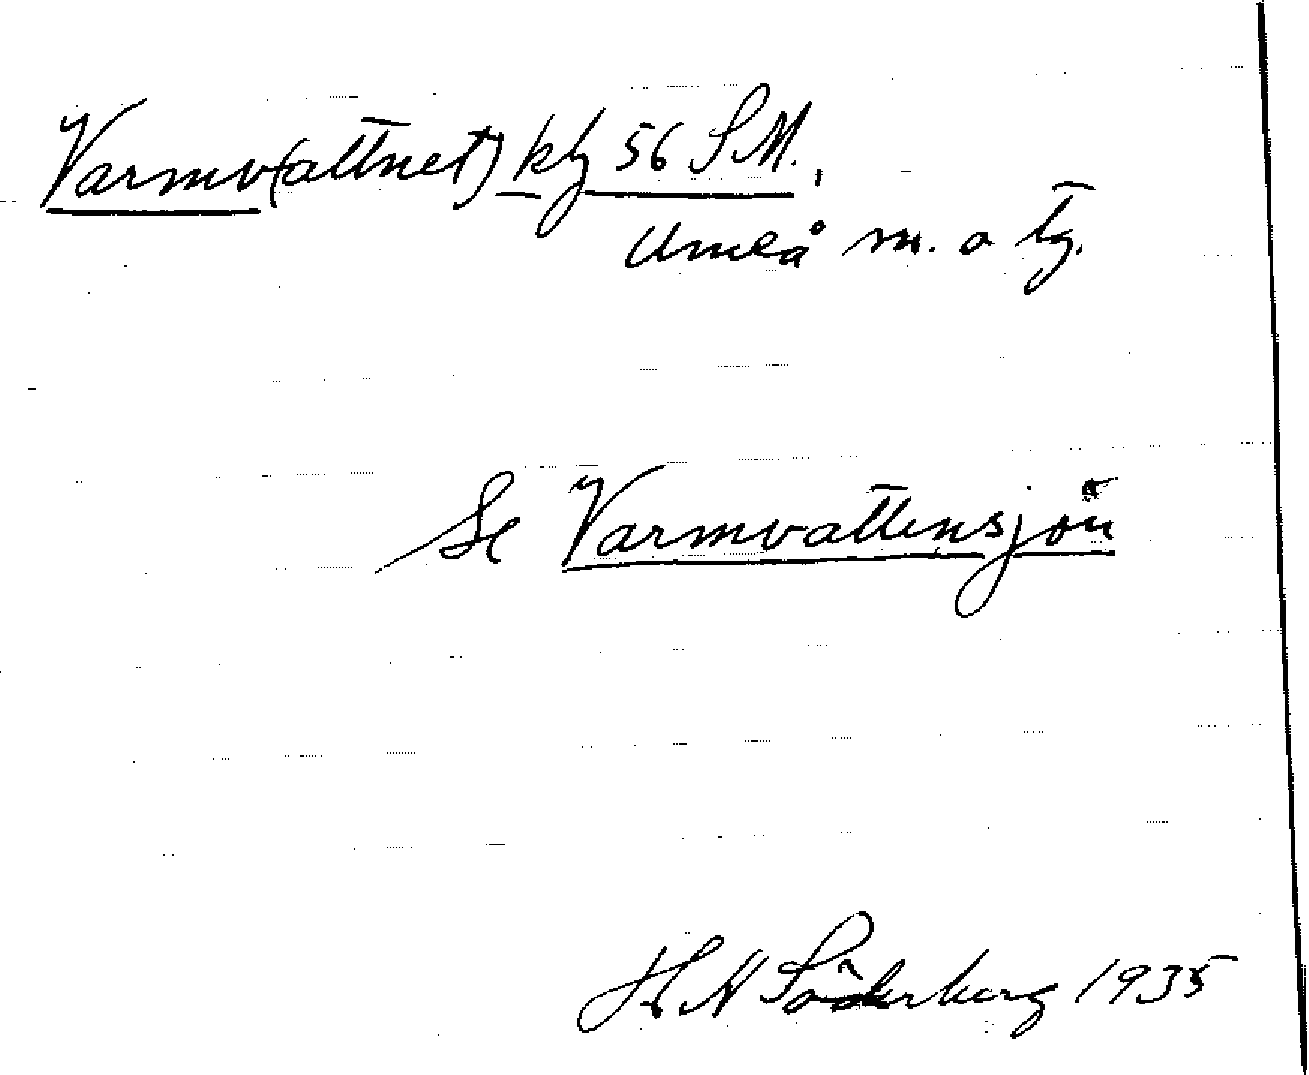 Varmv(attnet) kbj 56 S.M.,
Umeå m. o tg.
Se Varmvattensjön
Söderberg 1935